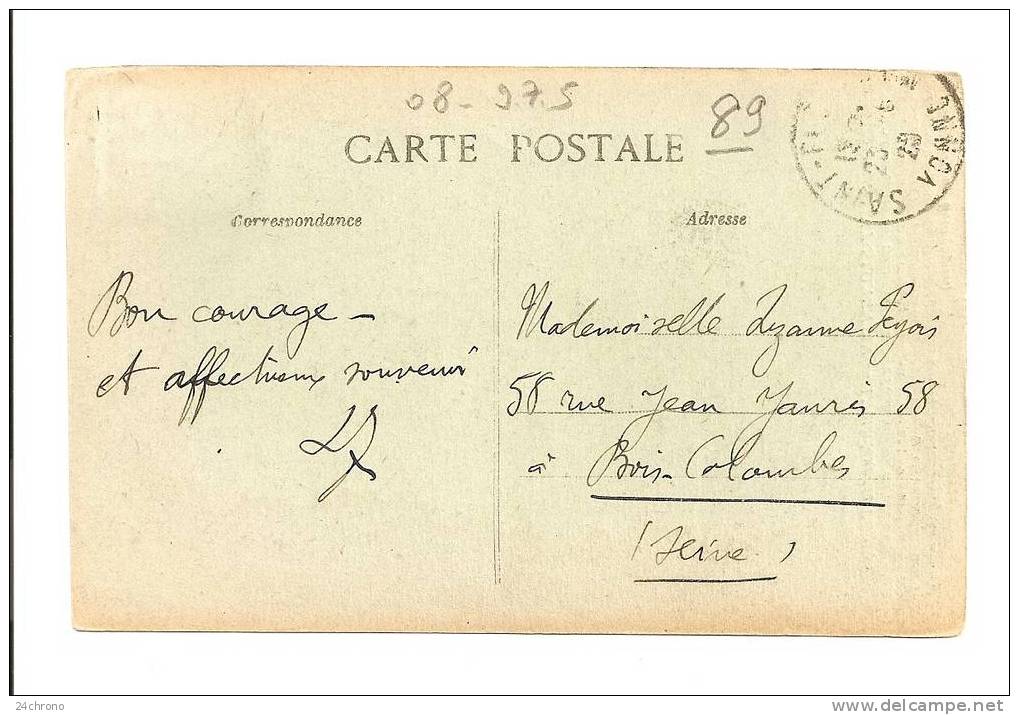 08-97.5
89
CARTE POSTALE
SAINT- YONNE
Correspondance
Adresse
Bon courage -
et affectueux souvenir
LJ
Mademoiselle Suzanne
58 rue Jean Jaurès 58
à Bois-Colombes
(Seine)
24chrono
delcampe.net